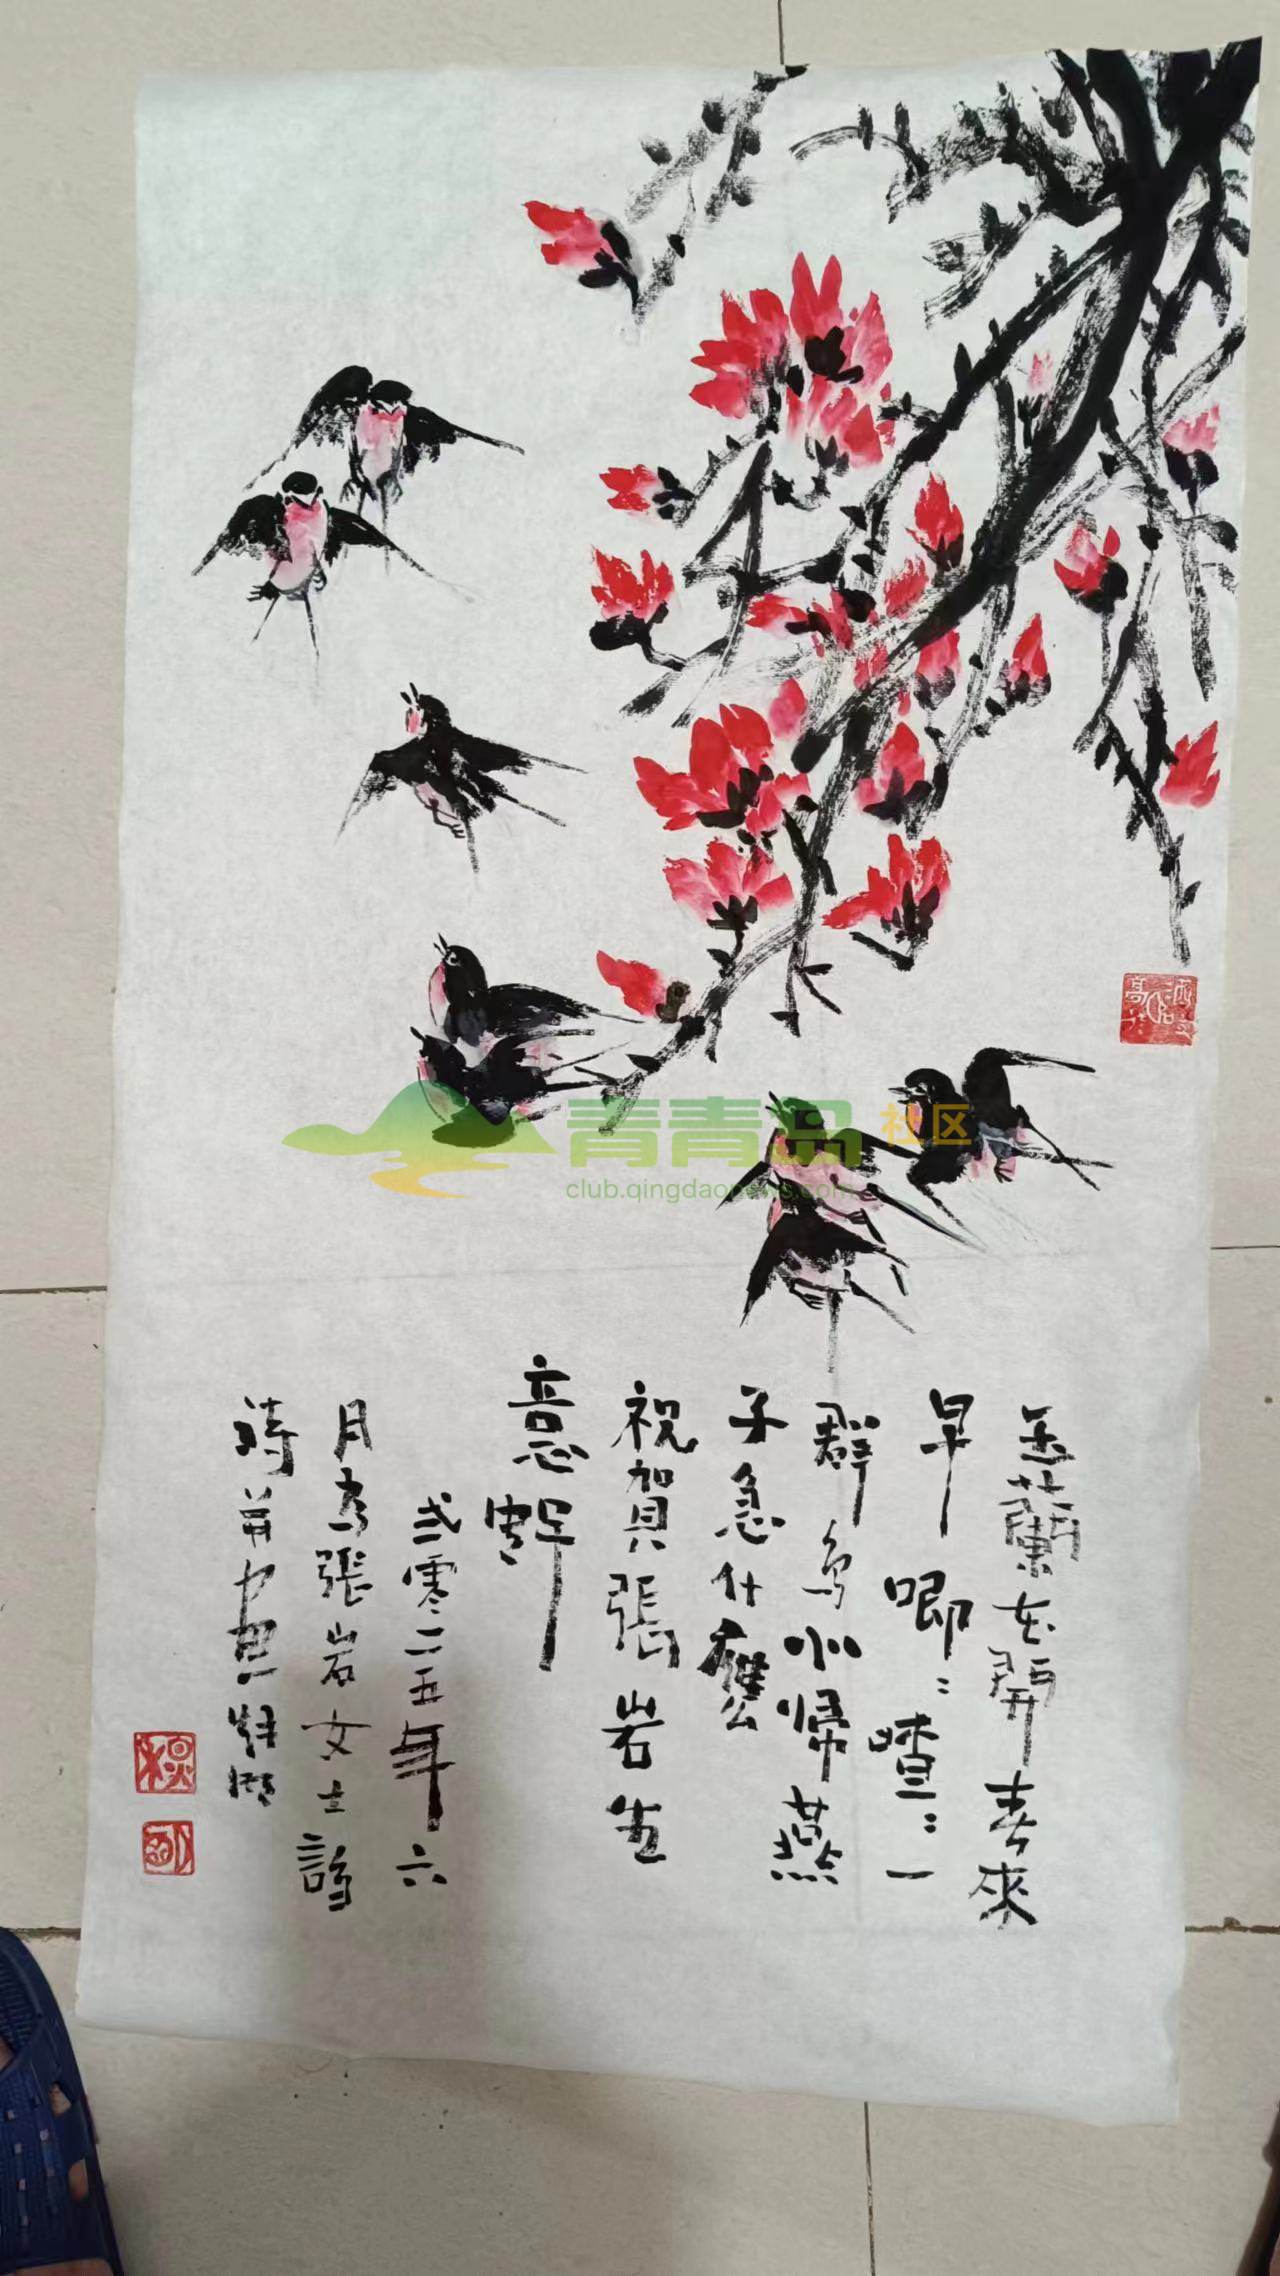 玉蘭花開春來
早唧：喳：一
群鸟北歸燕
子急什麽
祝賀張岩生
意
弍零二五年六
月为張岩女士詩
詩并画
青青岛社区
club.qingdaonews.com